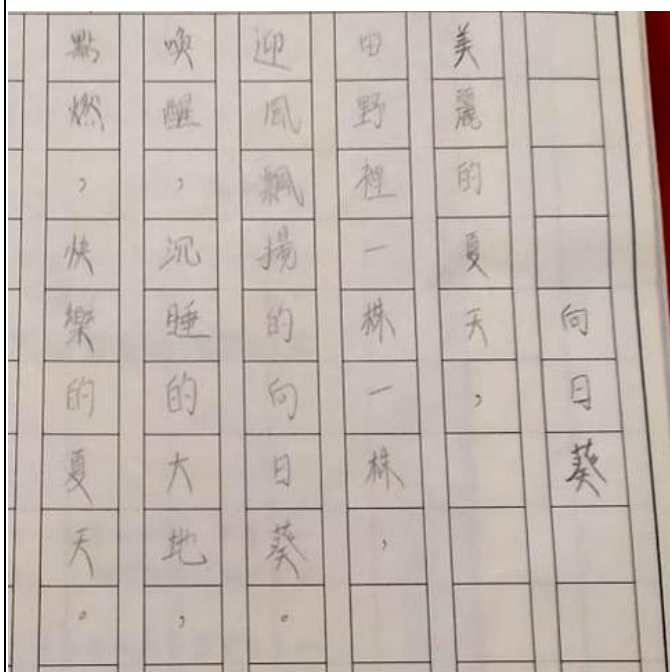 向日葵
美麗的夏天，
田野裡一株一株，
迎風飄揚的向日葵。
喚醒，沉睡的大地，
點燃，快樂的夏天。